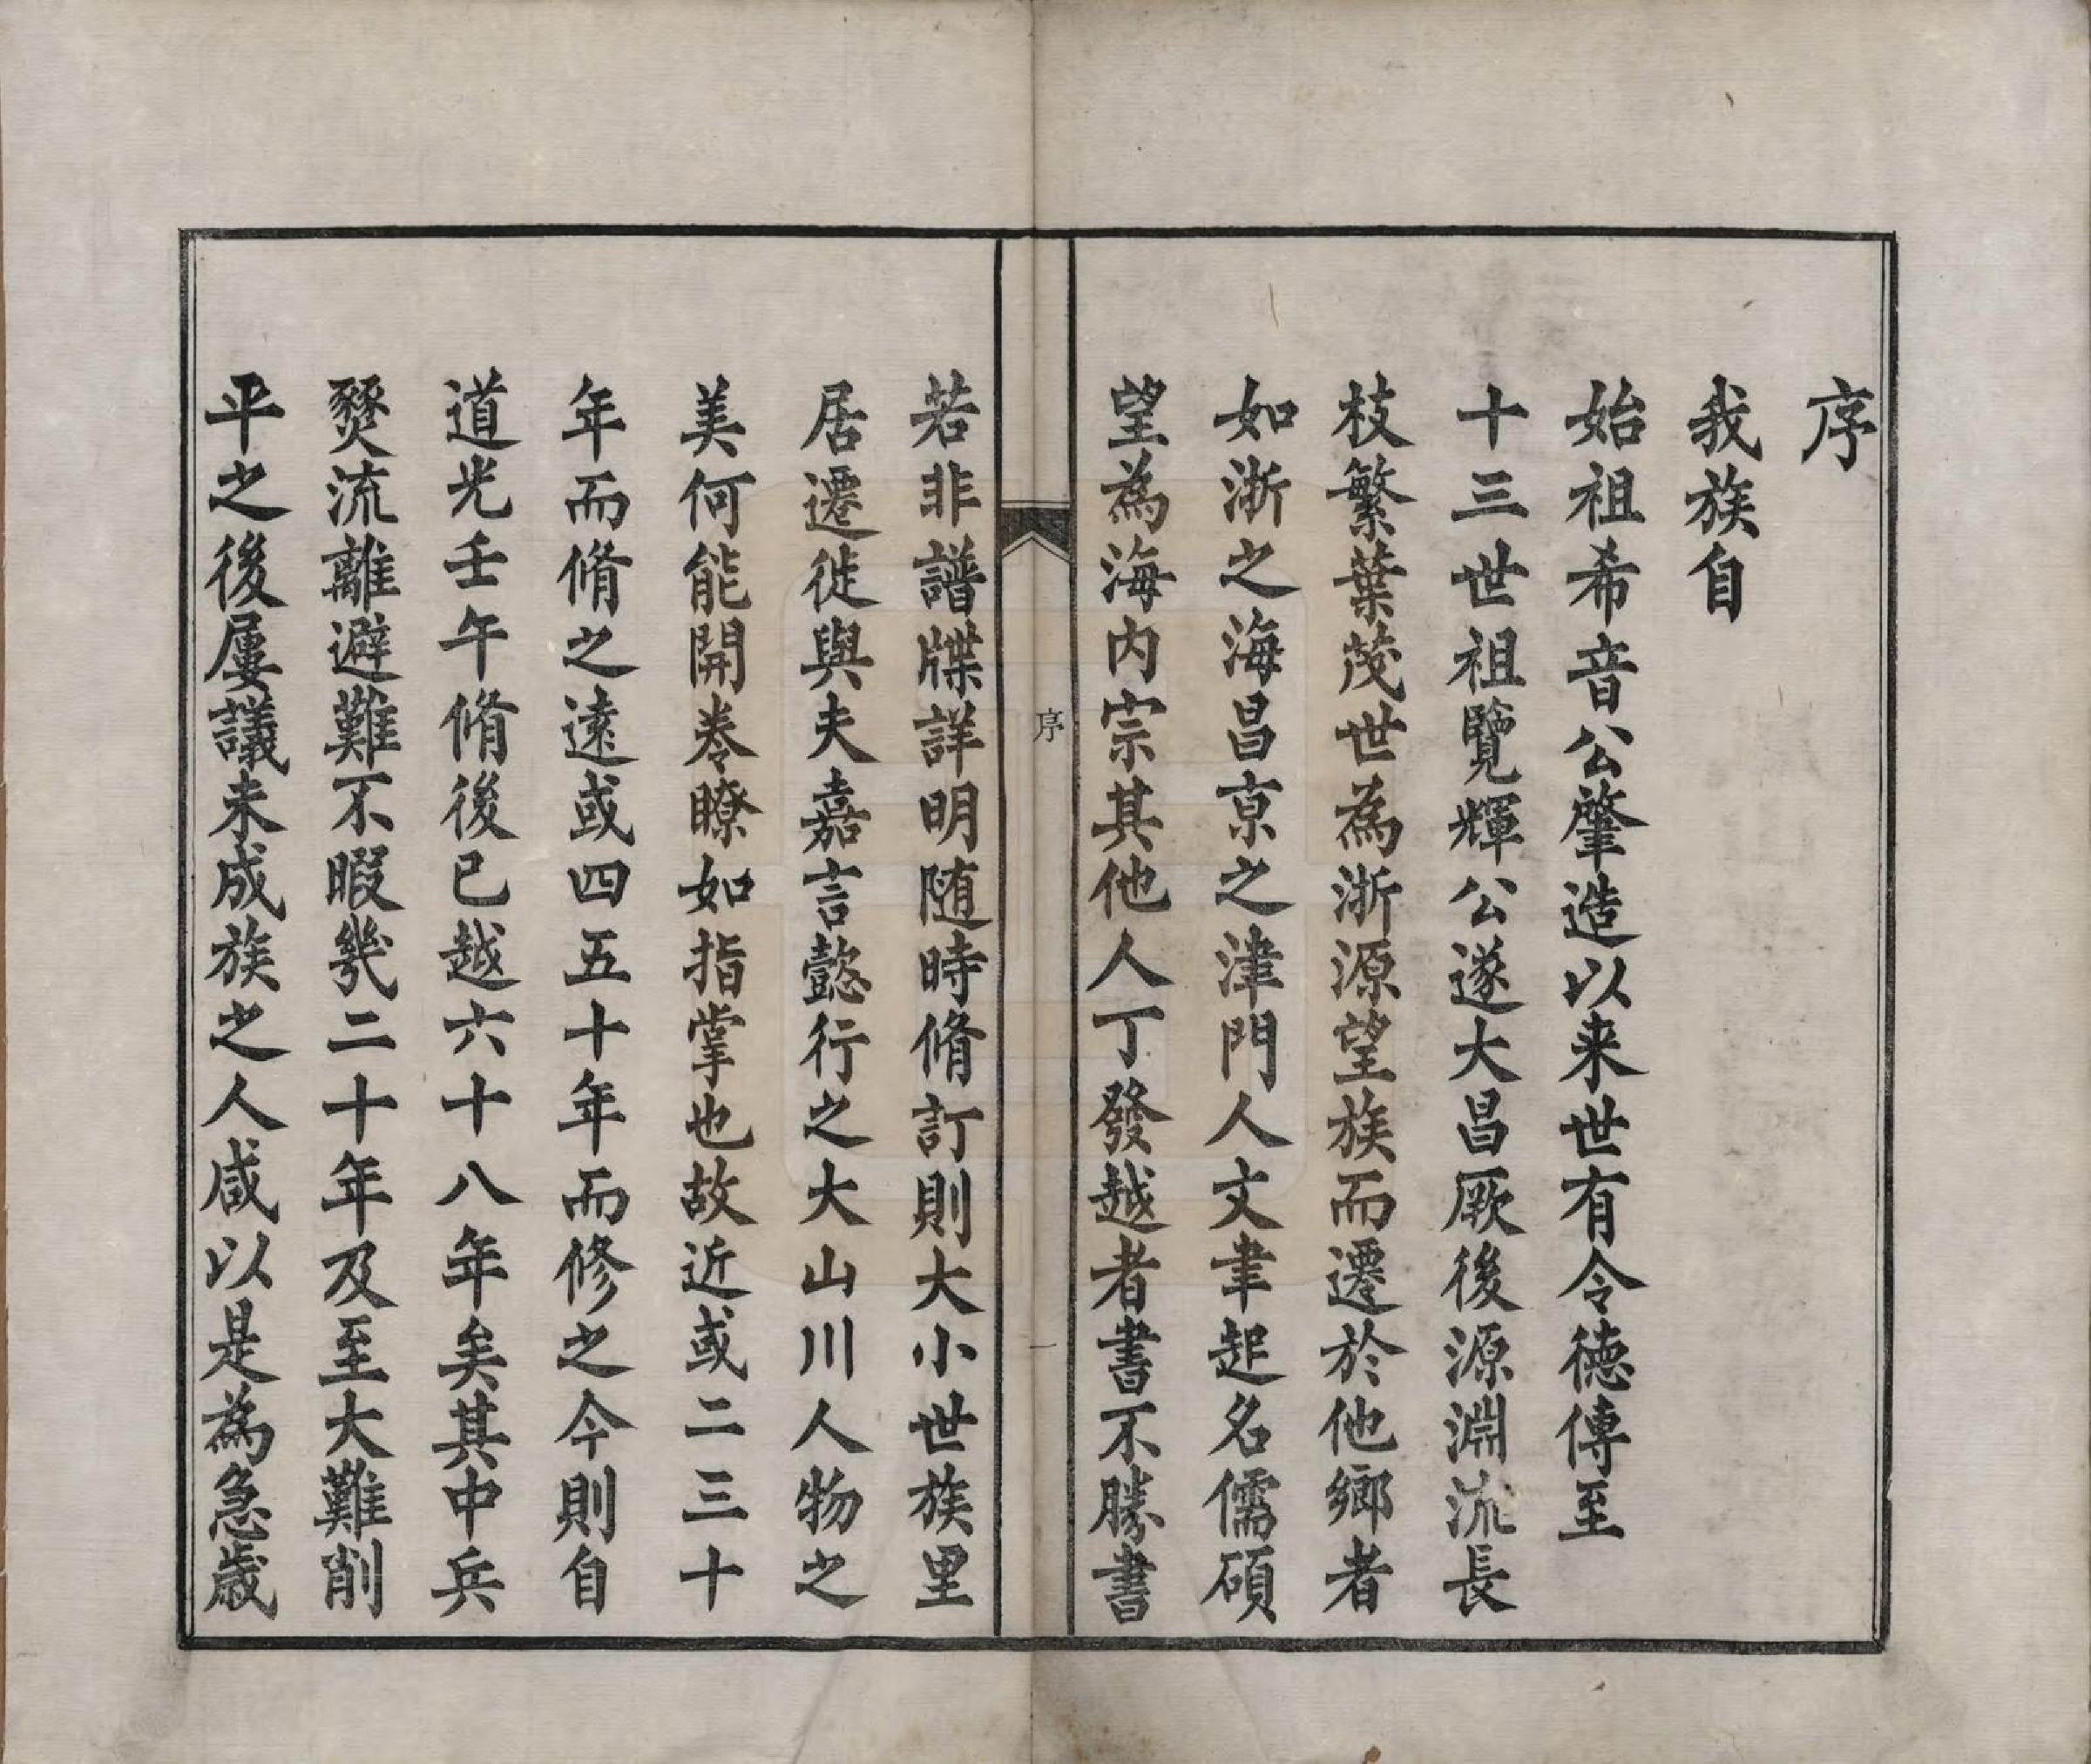 序
我族自
始祖希音公肇造以来世有令徳傳至
十三世祖覽輝公遂大昌厥後源淵流長
枝繁葉茂世為浙源望族而遷於他鄉者
如浙之海昌京之津門人文聿起名儒碩
望為海内宗其他人丁發越者書不勝書
序
一
若非譜牒詳明随時脩訂則大小世族里
居遷徙與夫嘉言懿行之大山川人物之
美何能開卷瞭如指掌也故近或二三十
年而脩之遠或四五十年而修之今則自
道光壬午脩後已越六十八年矣其中兵
燹流離避難不暇幾二十年及至大難削
平之後屢議未成族之人咸以是為急歲